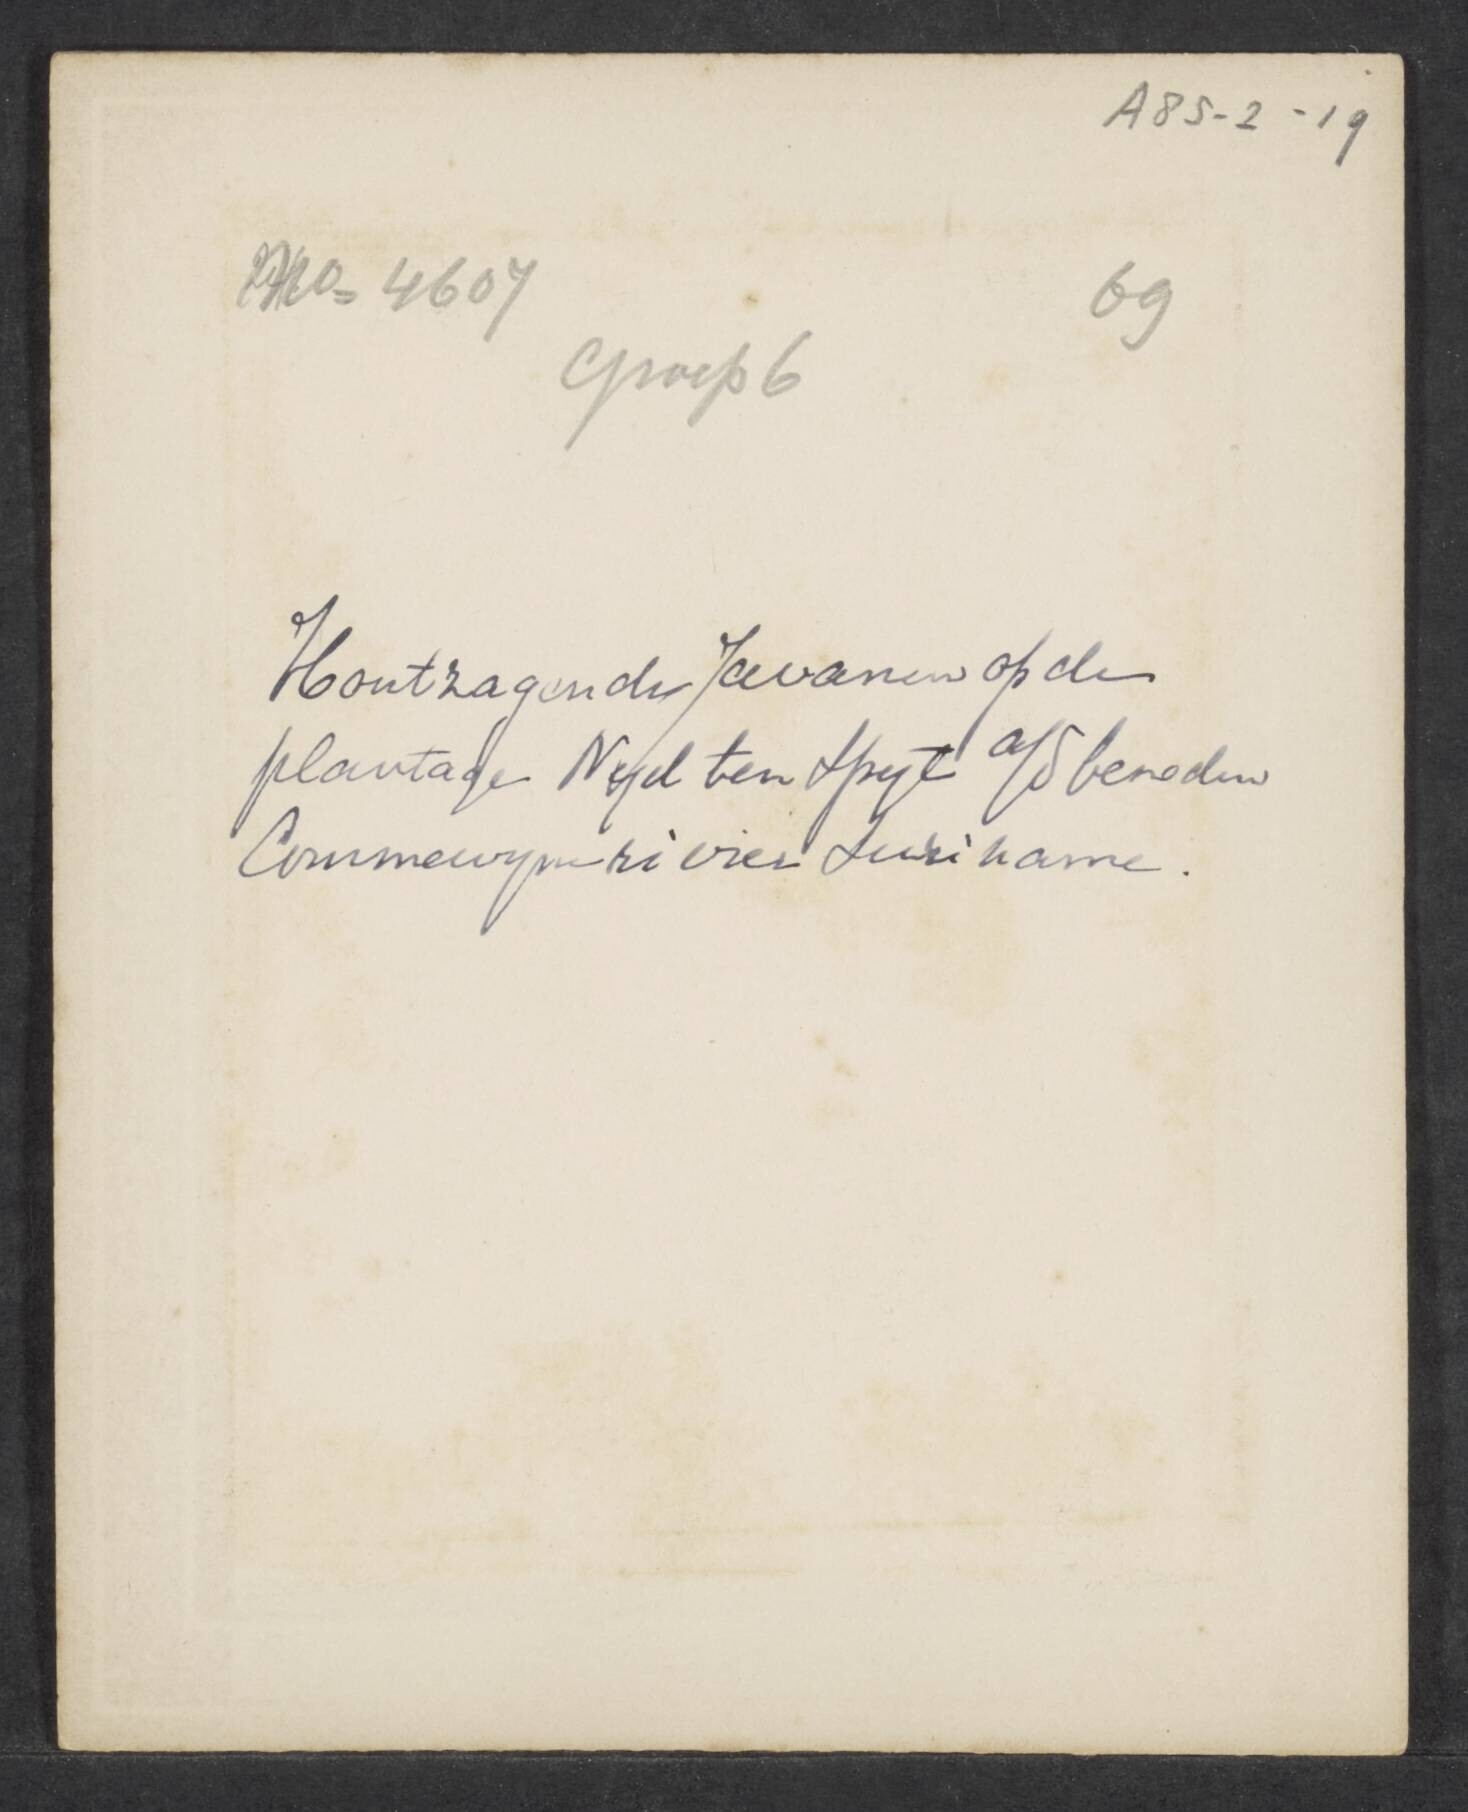 A85-2-19
No= 4607
69
Groep 6
Houtzagende Javanen op de
plantage Nyd ten Spyt a/d beneden
Commewyne rivier Suriname.